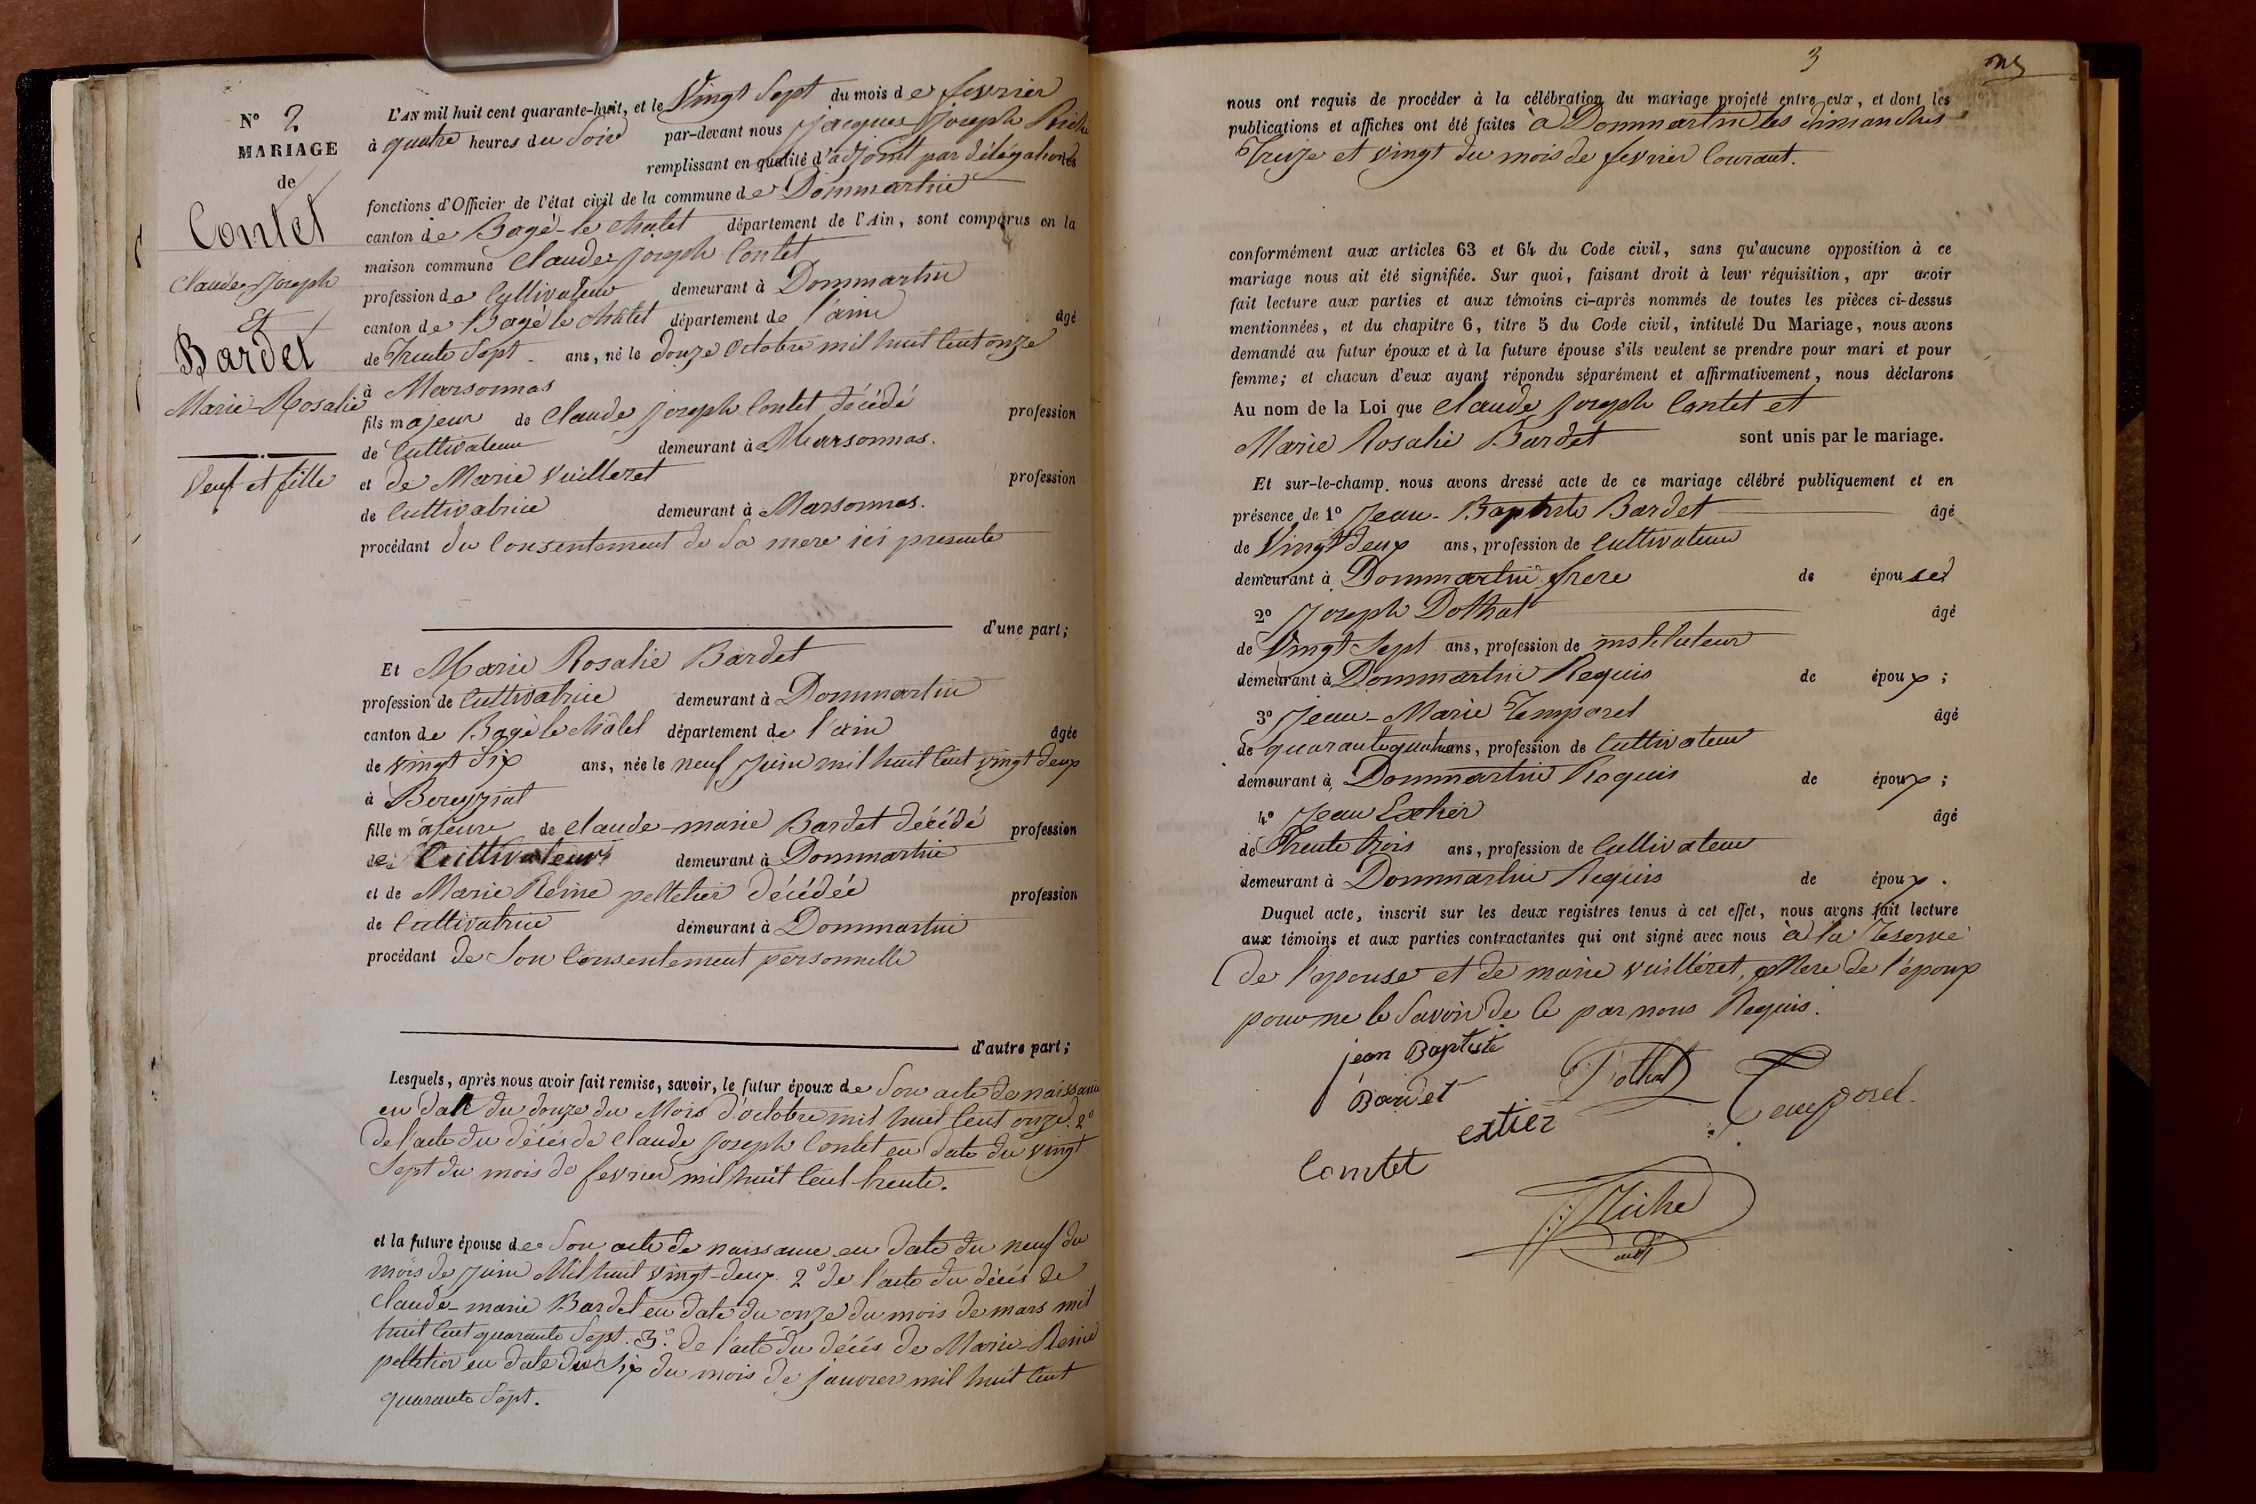 N° 2
MARIAGE
de
Contet
Claude Joseph
Et
Bardet
Marie Rosalie
Veuf et fille
L'AN mil huit cent quarante-huit, et le Vingt Sept du mois de fevrier
à quatre heures du Soir par-devant nous Jacques Joseph Riche
remplissant en qualité d'adjoint par délégation les
fonctions d'Officier de l'état civil de la commune de Dommartin
canton de Bagé-le chatel département de l'Ain, sont comparus en la
maison commune Claude Joseph Contet
profession de Cultivateur demeurant à Dommartin
canton de Bagé le châtel département de l'ain âgé
de Trente Sept ans, né le douze octobre mil huit cent onze
à Marsonnas
fils majeur de Claude Joseph Contet décédé profession
de Cultivateur demeurant à Marsonnas.
et de Marie Vuilleret profession
de Cultivatrice demeurant à Marsonnas.
procédant du Consentement de Sa mere ici presente
d'une part;
Et Marie Rosalie Bardet
profession de Cultivatrice demeurant à Dommartin
canton de Bagé le châtel département de l'ain âgée
de vingt Six ans, née le neuf Juin mil huit cent vingt deux
à Bereyziat
fille majeure de Claude-marie Bardet décédé profession
de Cultivateur demeurant à Dommartin
et de Marie Reine pelletier décédée profession
de Cultivatrice demeurant à Dommartin
procédant de Son Consentement personnelle
d'autre part;
Lesquels, après nous avoir fait remise, savoir, le futur époux de Son acte de naissance
en date du douze du Mois d'octobre mil huit Cent onze. 2°
de l'acte du décés de Claude Joseph Contet en date du vingt
Sept du mois de fevrier mil huit Cent trente.
et la future épouse de Son acte de naissance en date du neuf du
mois de Juin Mil huit vingt-deux. 2° de l'acte du décés de
Claude-marie Bardet en date du onze du mois de mars mil
huit Cent quarante Sept. 3° de l'acte du décés de Marie Reine
pelletier en date du Six du mois de janvier mil huit Cent
quarante Sept.
3
nous ont requis de procéder à la célébration du mariage projeté entre eux, et dont les
publications et affiches ont été faites à Dommartin les dimanches
Treize et vingt du mois de fevrier Courant.
conformément aux articles 63 et 64 du Code civil, sans qu'aucune opposition à ce
mariage nous ait été signifiée. Sur quoi, faisant droit à leur réquisition, apr avoir
fait lecture aux parties et aux témoins ci-après nommés de toutes les pièces ci-dessus
mentionnées, et du chapitre 6, titre 5 du Code civil, intitulé Du Mariage, nous avons
demandé au futur époux et à la future épouse s'ils veulent se prendre pour mari et pour
femme; et chacun d'eux ayant répondu séparément et affirmativement, nous déclarons
Au nom de la Loi que Claude Joseph Contet et
Marie Rosalie Bardet sont unis par le mariage.
Et sur-le-champ nous avons dressé acte de ce mariage célébré publiquement et en
présence de 1° Jean-Baptiste Bardet âgé
de Vingt deux ans, profession de Cultivateur
demeurant à Dommartin frere de épouse
2° Joseph Dothal âgé
de Vingt Sept ans, profession de instituteur
demeurant à Dommartin Requis de époux;
3° Jean-Marie Temporel âgé
de quarante quatre ans, profession de Cultivateur
demeurant à Dommartin Requis de époux;
4° Jean Extier âgé
de Trente trois ans, profession de Cultivateur
demeurant à Dommartin Requis de époux.
Duquel acte, inscrit sur les deux registres tenus à cet effet, nous avons fait lecture
aux témoins et aux parties contractantes qui ont signé avec nous à la reserve
de l'epouse et de marie vuilleret, Mere de l'époux
pour ne le Savoir de Ce par nous Requis.
jean Baptiste
Bardet
Dothal
Temporel
extier
Contet
Riche
adjt